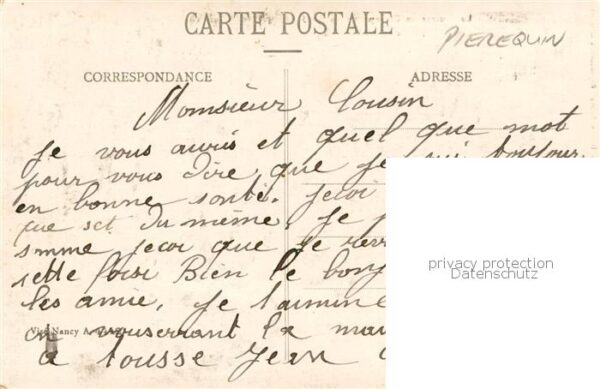 CARTE POSTALE
PIEREQUIN
CORRESPONDANCE ADRESSE
Monsieur Cousin
Je vous auris et quel que mot
pour vous dire que je sui toujour
en bonne sonté. jecoi
que set du même. Je
smme jecoi que je
sette foisi Bien le bonj
les amie. je tarmine
Nancy
en vouserrant la mai
a tousse Jean
privacy protection
Datenschutz